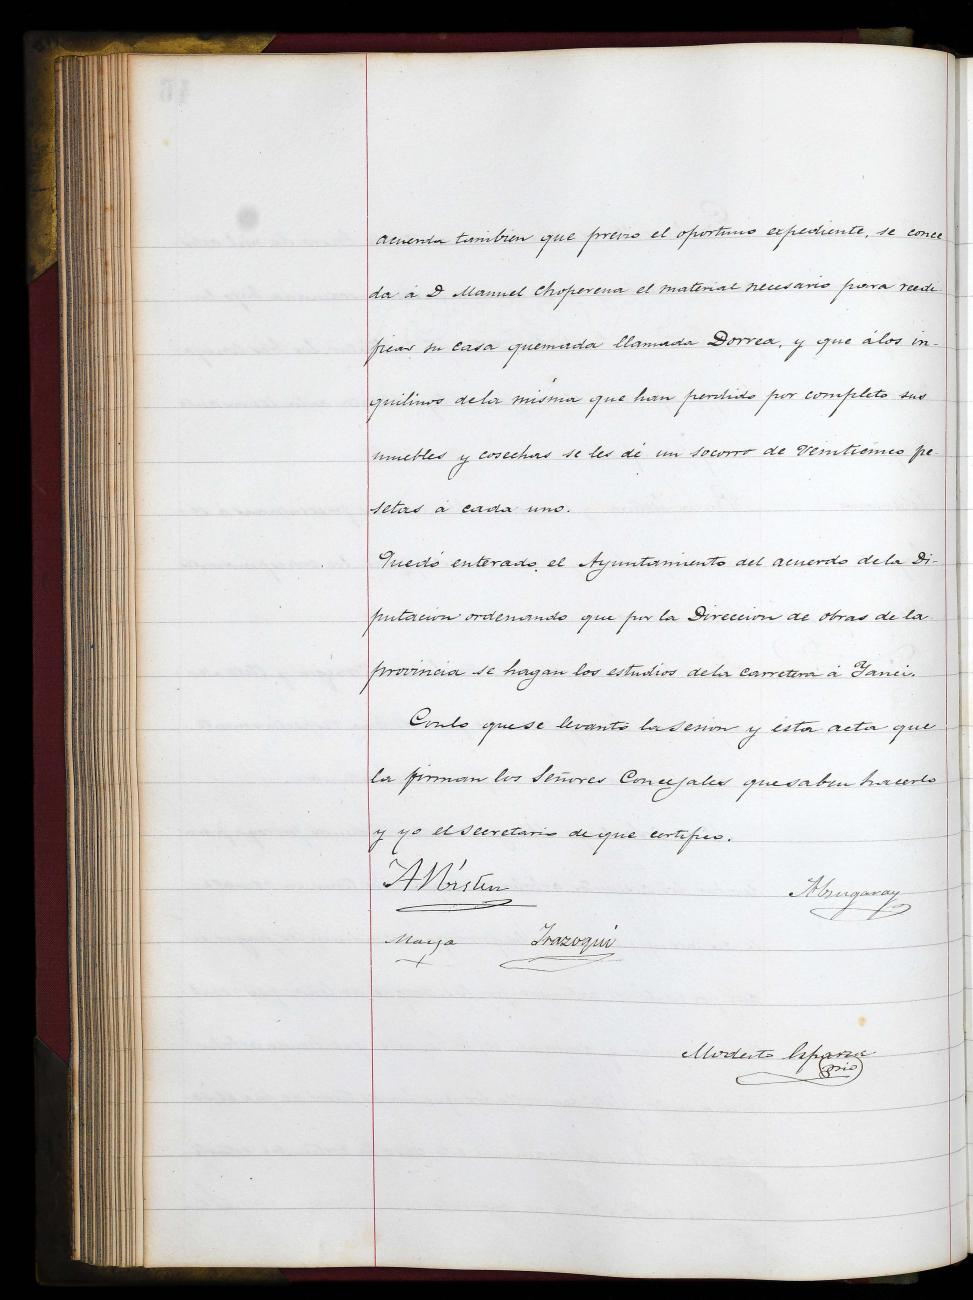 acuerda tambien que previo el oportuno expediente, se conce
da á D Manuel Choperena el material necesario para reedi-
ficar su casa quemada llamada Dorrea, y que álos in-
quilinos dela misma que han perdido por completo sus
muebles y cosechas se les dé un socorro de veinticinco pe-
setas á cada uno.
Quedó enterado el Ayuntamiento del acuerdo dela Di-
putacion ordenando que por la Direccion de obras de la
provincia se hagan los estudios dela carretera á Yanci.
Conlo quese levantó la sesion y esta acta que
la firman los Señores Concejales quesaben hacerlo
y yo el secretario de que certifico.
Maya Irazoqui
Modesto Esparza
srio